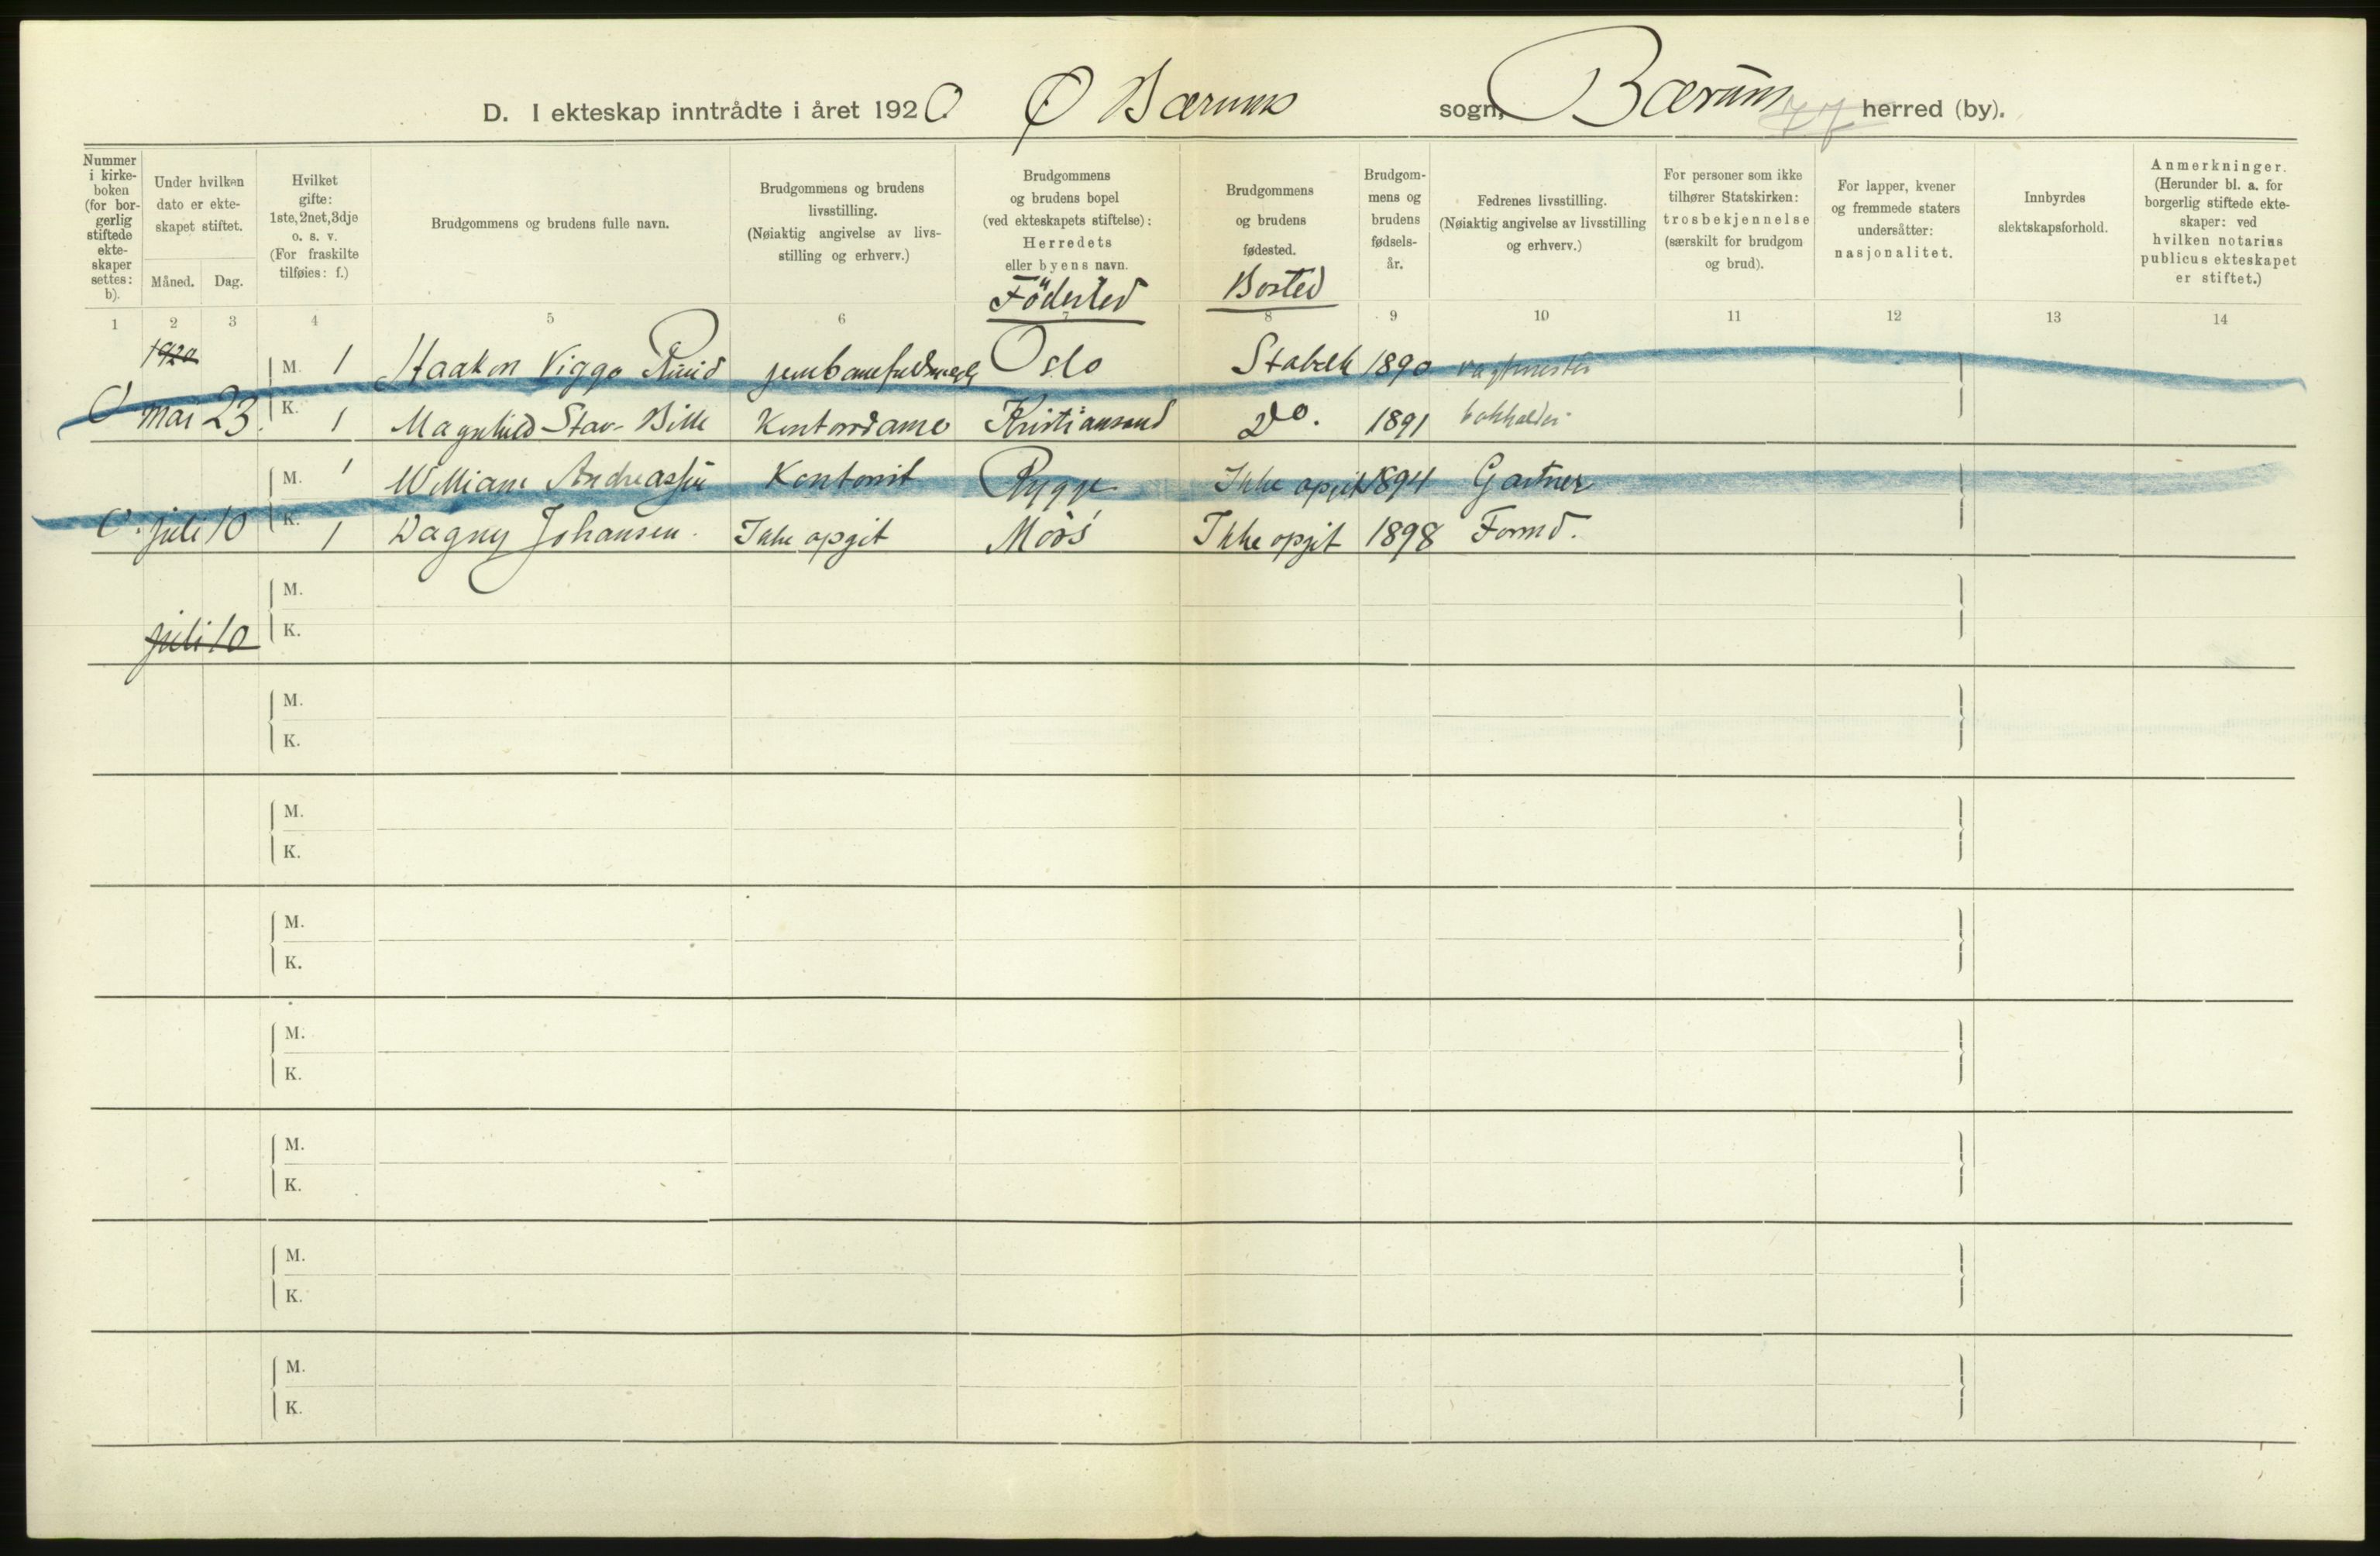 D. I ekteskap inntrådte i året 1920 Ø Bærums sogn, Bærum herred (by).
Nummer i kirkeboken (for borgerlig stiftede ekteskaper settes: b).
Under hvilken dato er ekteskapet stiftet.
Måned. Dag.
Hvilket gifte: 1ste, 2net, 3dje o. s. v. (For fraskilte tilføies: f.)
Brudgommens og brudens fulle navn.
Brudgommens og brudens livsstilling. (Nøiaktig angivelse av livsstilling og erhverv.)
Brudgommens og brudens bopel (ved ekteskapets stiftelse): Herredets eller byens navn.
Födested
Brudgommens og brudens fødested.
Bosted
Brudgommens og brudens fødselsår.
Fedrenes livsstilling. (Nøiaktig angivelse av livsstilling og erhverv.)
For personer som ikke tilhører Statskirken: trosbekjennelse (særskilt for brudgom og brud).
For lapper, kvener og fremmede staters undersåtter: nasjonalitet.
Innbyrdes slektskapsforhold.
Anmerkninger. (Herunder bl. a. for borgerlig stiftede ekteskaper: ved hvilken notarius publicus ekteskapet er stiftet.)
1 2 3 4 5 6 7 8 9 10 11 12 13 14
1920
M. 1 Haakon Viggo Ruud Oslo Stabekk 1890
mai 23. K. 1 Magnhild Stav-Bille Kontordame Kristiansand do. 1891 bokholder
M. 1 William Andreassen Kontorist Rygge Ikke opgit 1894 Gartner
juli 10 K. 1 Dagny Johansen. Ikke opgit Moss Ikke opgit 1898 Formd.
M.
juli 10 K.
M.
K.
M.
K.
M.
K.
M.
K.
M.
K.
M.
K.
M.
K.